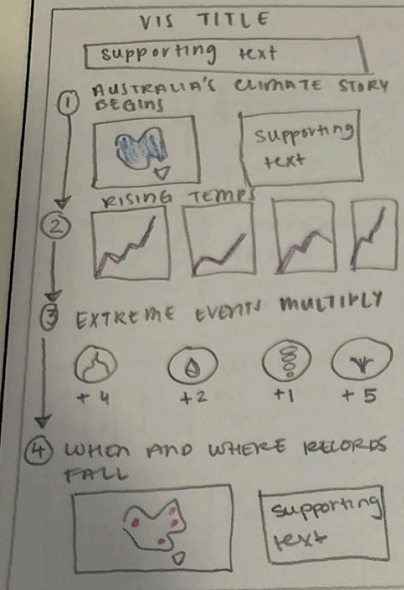 VIS TITLE
supporting text
1 AUSTRALIA'S CLIMATE STORY
BEGINS
supporting
text
2 RISING TEMPS
3 EXTREME EVENTS MULTIPLY
+4 +2 +1 +5
4 WHEN AND WHERE RECORDS
FALL
supporting
text